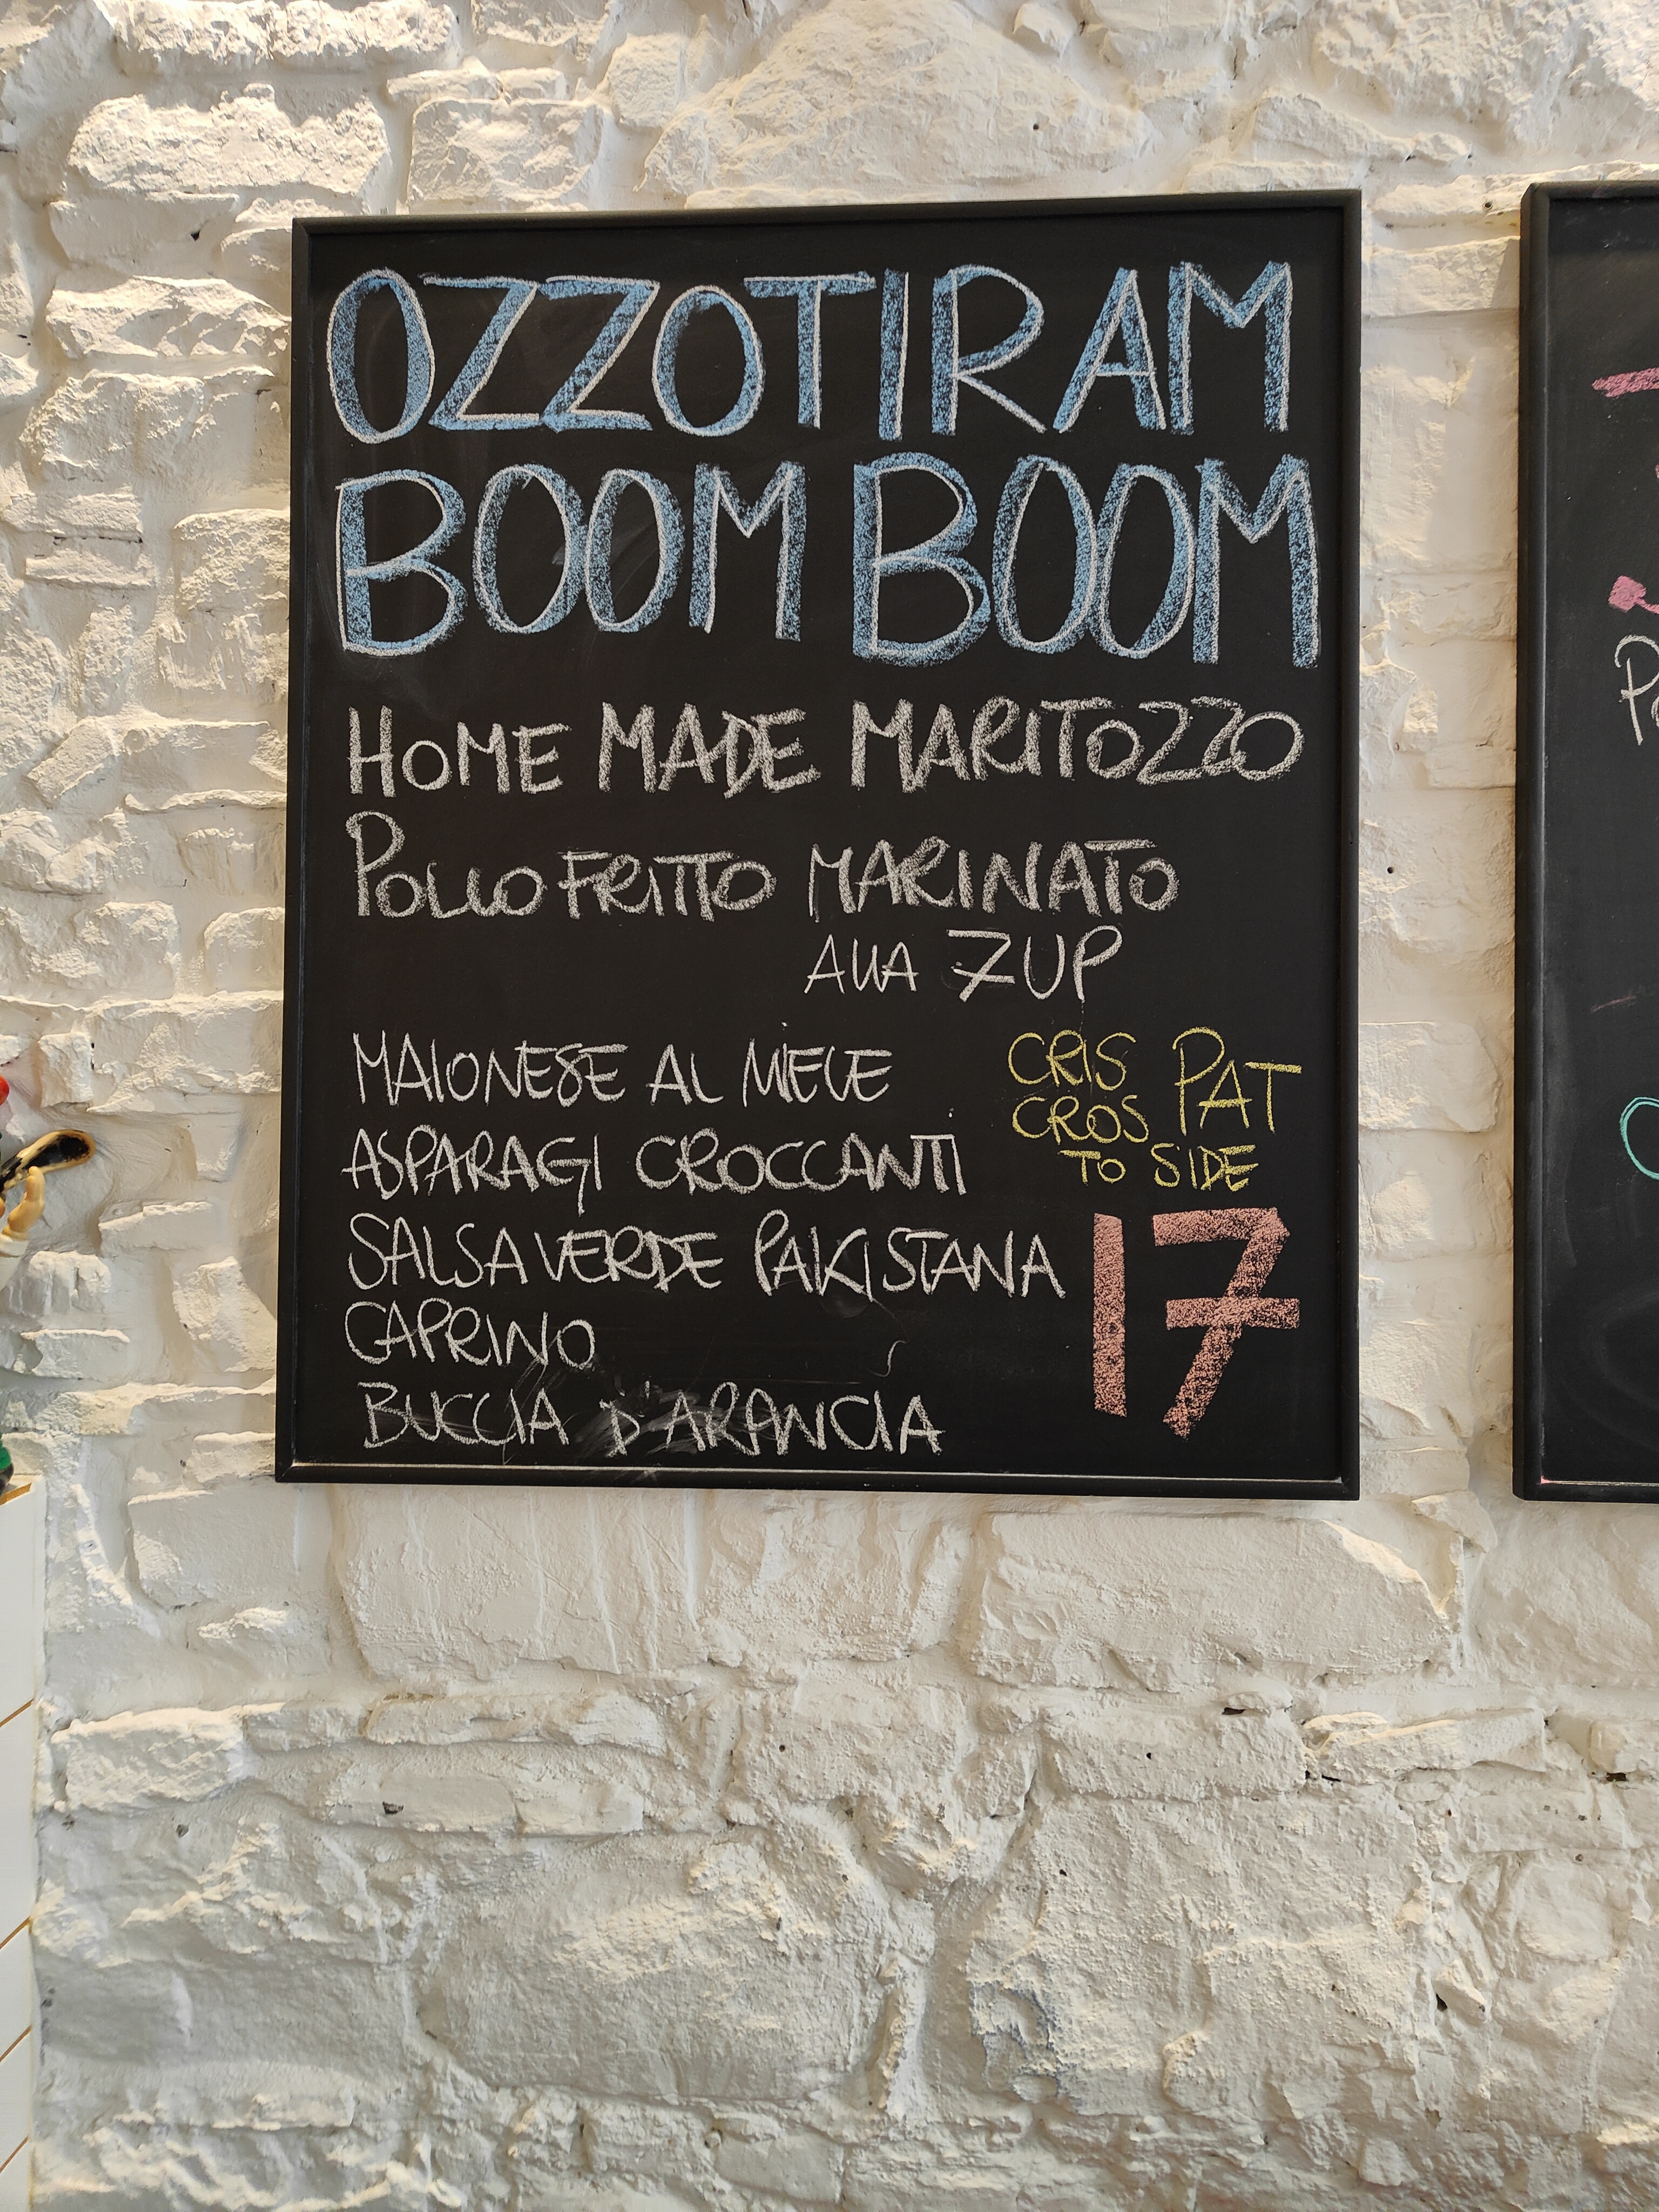 OZZOTIRAM
BOOM BOOM
HOME MADE MARITOZZO
POLLO FRITTO MARINATO
ALLA 7UP
MAIONESE AL MIELE
ASPARAGI CROCCANTI
SALSA VERDE PAKISTANA
CAPRINO
BUCCIA D'ARANCIA
CRIS PAT
CROS
TO SIDE
17